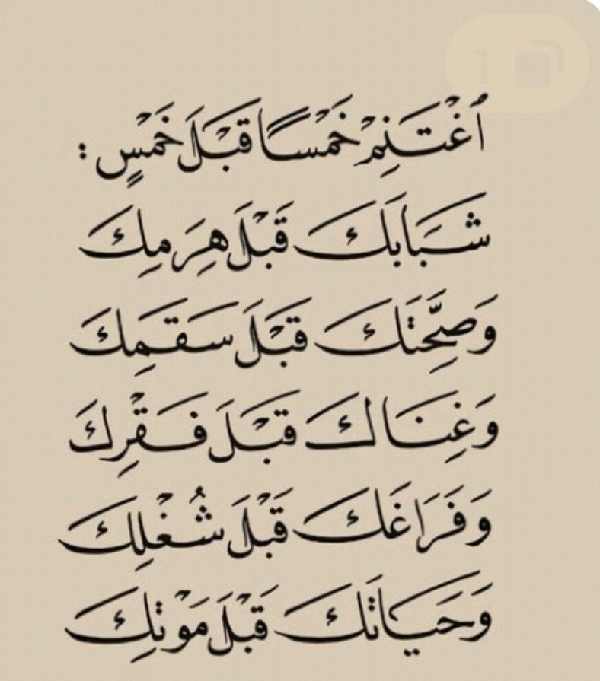 اُغْتَنِمْ خَمْسًا قَبْلَ خَمْسٍ :
شَبَابَكَ قَبْلَ هِرَمِكَ
وَصِحَّتَكَ قَبْلَ سَقَمِكَ
وَغِنَاكَ قَبْلَ فَقْرِكَ
وَفَرَاغَكَ قَبْلَ شُغْلِكَ
وَحَيَاتَكَ قَبْلَ مَوْتِكَ